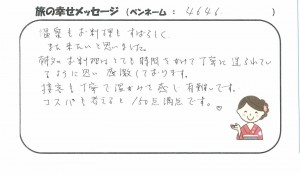 旅の幸せメッセージ (ペンネーム : 4646. )
温泉もお料理もすばらしく
また来たいと思いました。
朝夕のお料理はとても時間をかけて丁寧に造られてい
るように思い感激しております。
接客も丁寧で温かみて感じ有難いです。
コスパも考えると150点満点です。